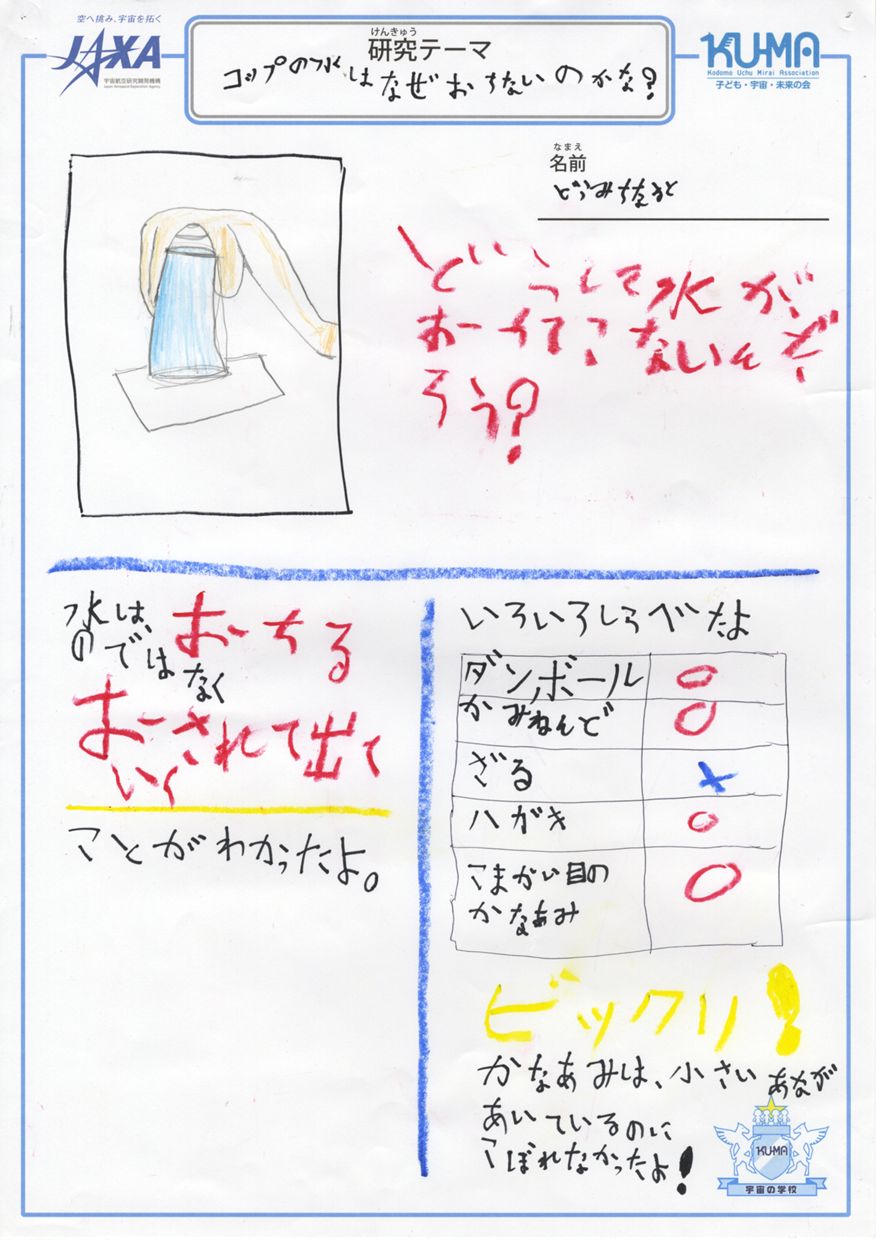 空へ挑み、宇宙を拓く
JAXA
宇宙航空研究開発機構
Japan Aerospace Exploration Agency
けんきゅう
研究テーマ
コップの水はなぜおちないのかな?
KU-MA
Kodomo Uchu Mirai Association
子ども・宇宙・未来の会
なまえ
名前
どうして水が
おーってこないんだ
ろう?
水は、おーちる
のではなく
おーされて出て
いく
ことがわかったよ。
いろいろしらべたよ
ダンボール ○
かみねんど ○
ざる ×
ハがき ○
こまかい目の
かなあみ ○
ビックリ!
かなあみは、小さいあながが
あいているのに
こぼれなかったよ!
KU-MA
宇宙の学校